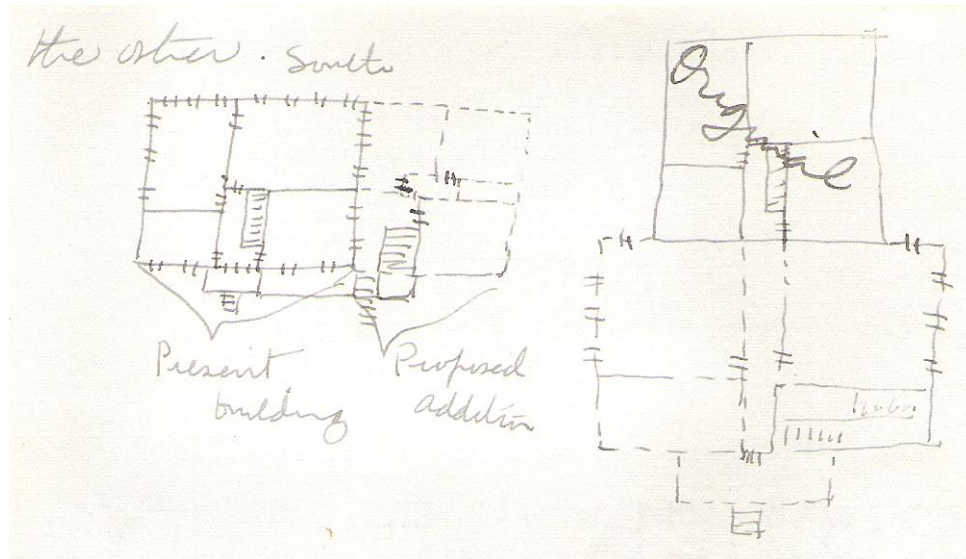 the other. South
Original
Present
building
Proposed
addition